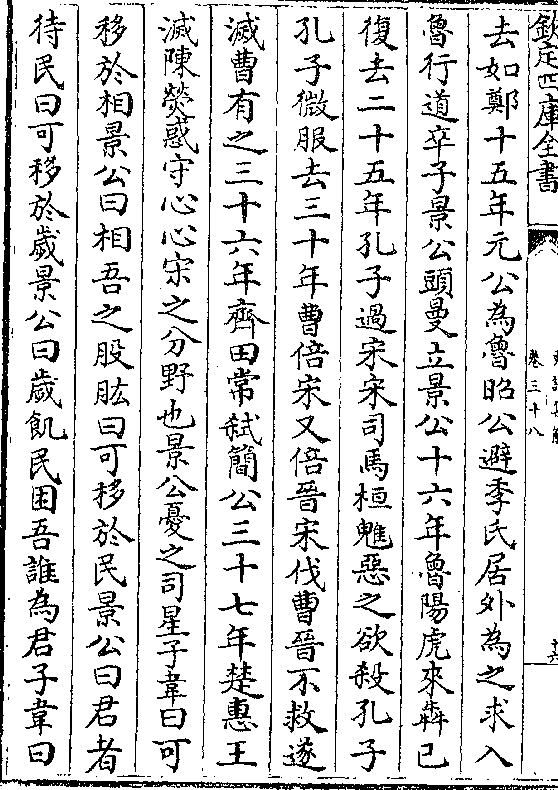 欽定四庫全書
卷三十八
去如鄭十五年元公為魯昭公避季氏居外為之求入
魯行道卒子景公頭曼立景公十六年魯陽虎來犇已
復去二十五年孔子過宋宋司馬桓魋惡之欲殺孔子
孔子微服去三十年曹倍宋又倍晉宋伐曹晉不救遂
滅曹有之三十六年齊田常弑簡公三十七年楚惠王
滅陳熒惑守心心宋之分野也景公憂之司星子韋曰可
移於相景公曰相吾之股肱曰可移於民景公曰君者
待民曰可移於歲景公曰歲飢民困吾誰為君子韋曰